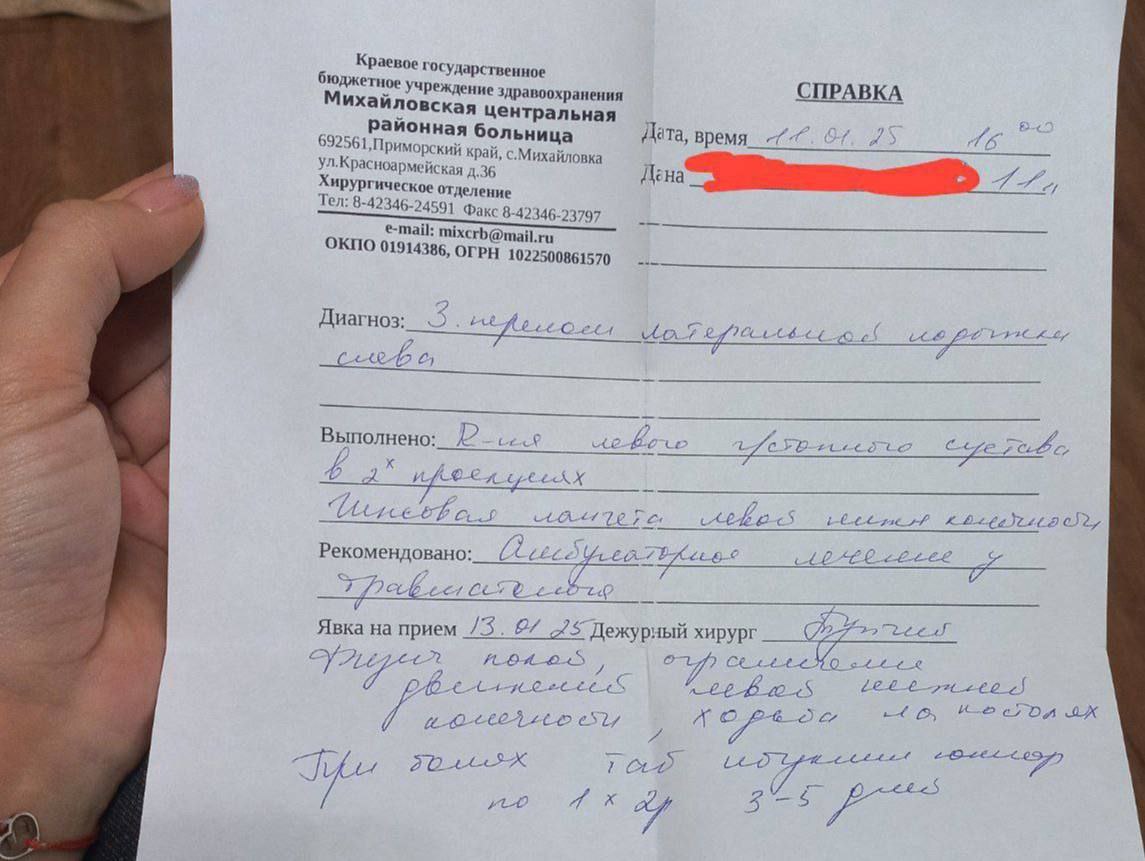 Краевое государственное
бюджетное учреждение здравоохранения
Михайловская центральная
районная больница
692561,Приморский край, с.Михайловка
ул.Красноармейская д.36
Хирургическое отделение
Тел: 8-42346-24591 Факс 8-42346-23797
e-mail: mixcrb@mail.ru
ОКПО 01914386, ОГРН 1022500861570
СПРАВКА
Дата, время 11.01.25 16 00
Дана 11л
Диагноз: З. перелом латеральной лодыжки
слева
Выполнено: R-ия левого г/стопного сустава
в 2х проекциях
Гипсовая лангета левой нижн конечности
Рекомендовано: Амбулаторное лечение у
травматолога
Явка на прием 13.01 25 Дежурный хирург
Физич покой, ограничение
движений левой нижней
конечности, ходьба на костылях
При болях таб ибуклин юниор
по 1 х 2р 3-5 дней